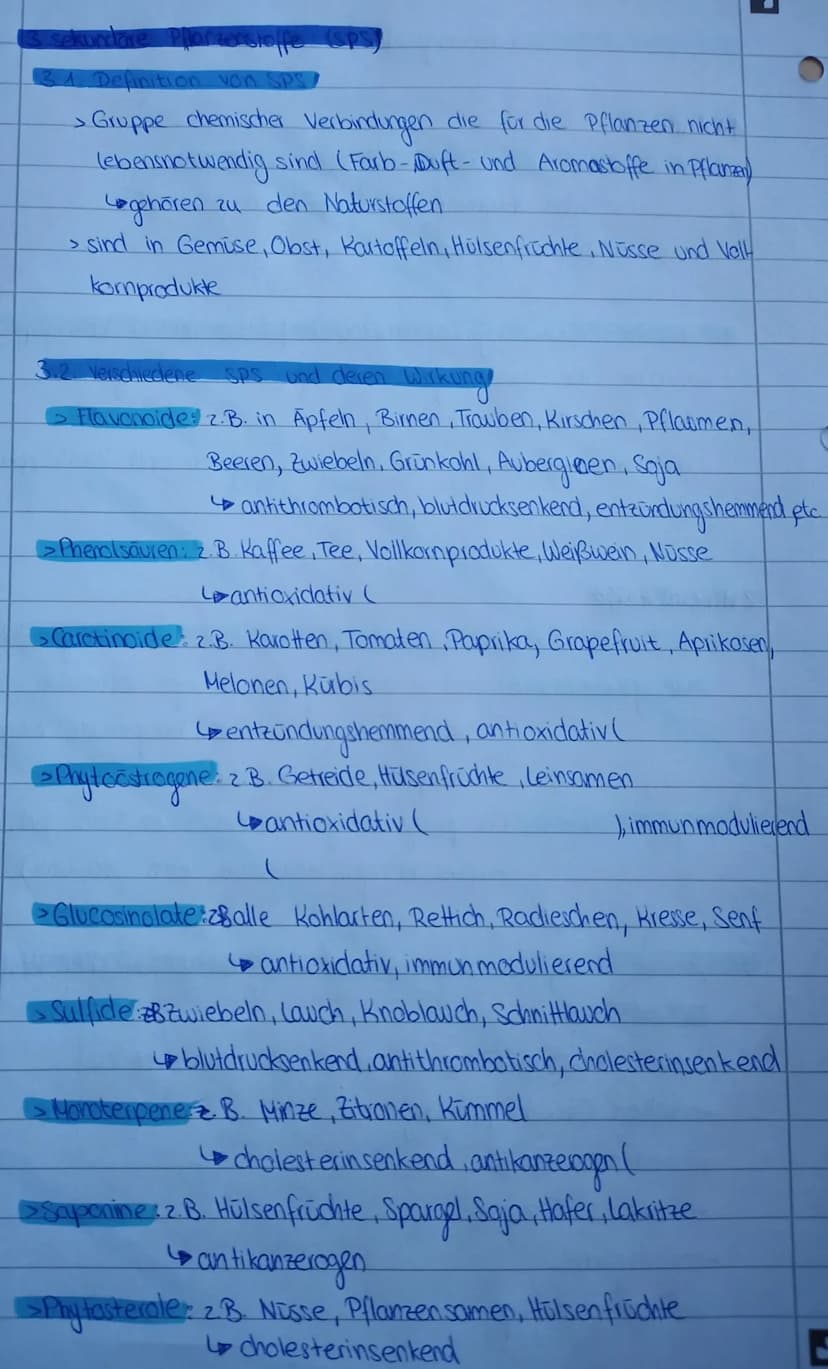 3 sekundäre Pflanzenstoffe (SPS)
3.1. Definition von SPS
> Gruppe chemischer Verbindungen die für die Pflanzen nicht
lebensnotwendig sind (Farb-Duft- und Aromastoffe in Pflanzen)
↳gehören zu den Naturstoffen
> sind in Gemüse, Obst, Kartoffeln, Hülsenfrüchte, Nüsse und Voll
kornprodukte
3.2. verschiedene SPS und deren Wirkung
> Flavonoide: z.B. in Äpfeln, Birnen, Trauben, Kirschen, Pflaumen,
Beeren, Zwiebeln, Grünkohl, Auberginen, Soja
↳ antithrombotisch, blutdrucksenkend, entzündungshemmend etc
> Phenolsäuren: z.B. Kaffee, Tee, Vollkornprodukte, Weißwein, Nüsse
↳ antioxidativ (
> Carotinoide: z.B. Karotten, Tomaten, Paprika, Grapefruit, Aprikosen,
Melonen, Kübis
↳ entzündungshemmend, antioxidativ (
> Phytoöstrogene: z B. Getreide, Hülsenfrüchte, Leinsamen
↳ antioxidativ ( ), immunmodulierend
(
> Glucosinolate: zB alle Kohlarten, Rettich, Radieschen, Kresse, Senf
↳ antioxidativ, immunmodulierend
> Sulfide: zB Zwiebeln, Lauch, Knoblauch, Schnittlauch
↳ blutdrucksenkend, antithrombotisch, cholesterinsenkend
> Monoterpene: z B. Minze, Zitronen, Kümmel
↳ cholesterinsenkend, antikanzerogen (
> Saponine: z.B. Hülsenfrüchte, Spargel, Soja, Hafer, Lakritze
↳ antikanzerogen
> Phytosterole: z B. Nüsse, Pflanzensamen, Hülsenfrüchte
↳ cholesterinsenkend